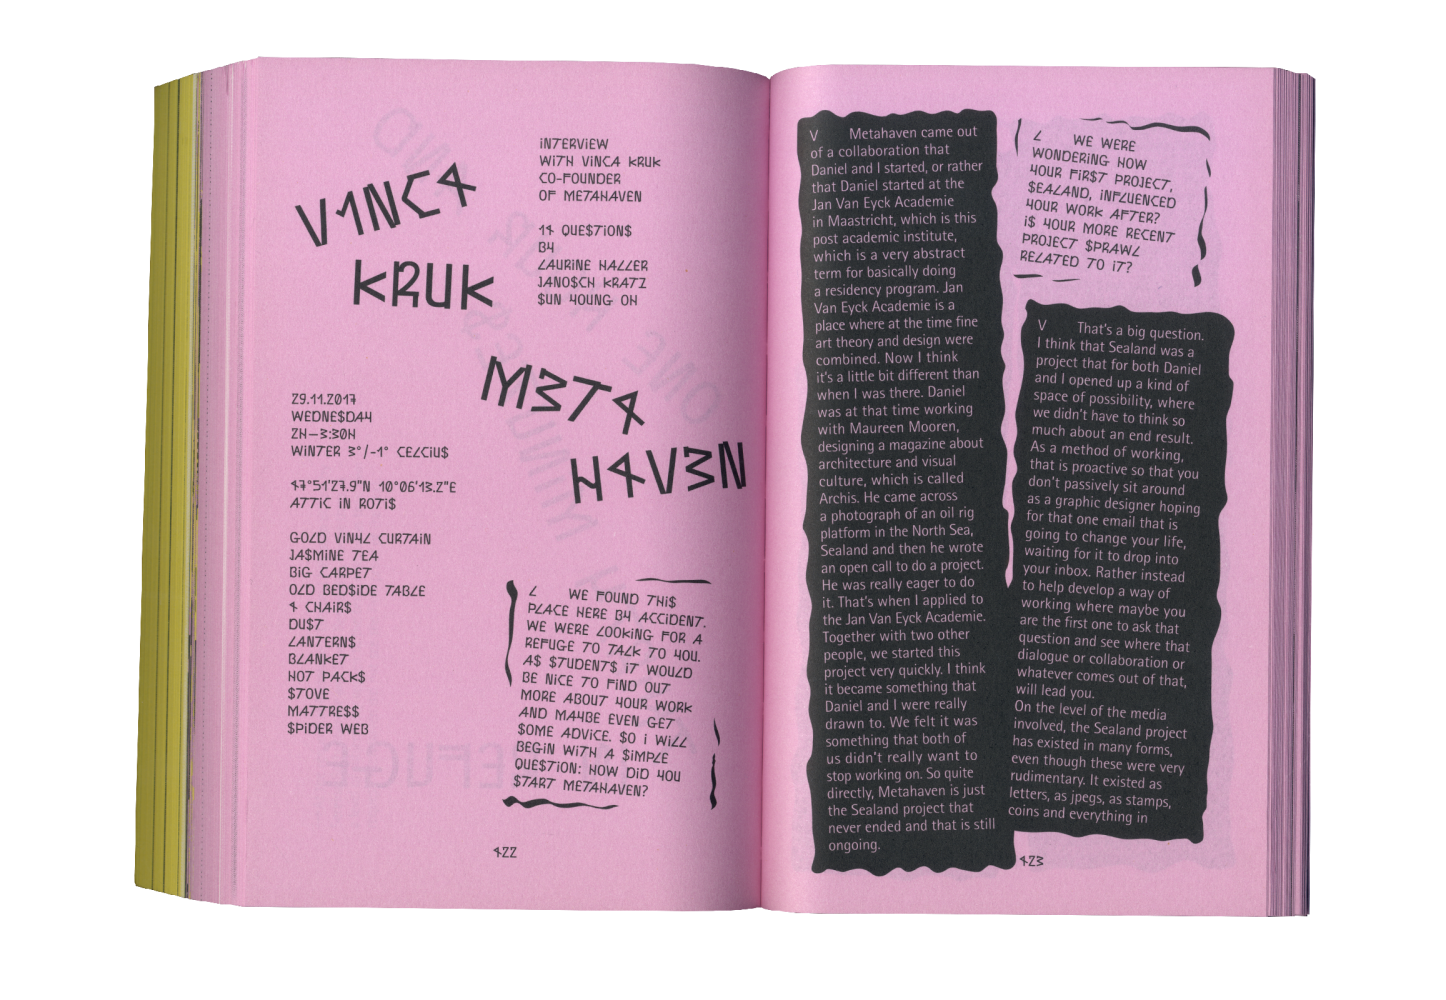 VINCA
KRUK
META
HAVEN
INTERVIEW
WITH VINCA KRUK
CO-FOUNDER
OF METAHAVEN
14 QUESTIONS
BY
LAURINE HALLER
JANOSCH KRATZ
SUN YOUNG OH
29.11.2017
WEDNESDAY
2H–3:30H
WINTER 3°/-1° CELCIUS
47°51'27.9"N 10°06'13.2"E
ATTIC IN ROTIS
GOLD VINYL CURTAIN
JASMINE TEA
BIG CARPET
OLD BEDSIDE TABLE
4 CHAIRS
DUST
LANTERNS
BLANKET
HOT PACKS
STOVE
MATTRESS
SPIDER WEB
L WE FOUND THIS
PLACE HERE BY ACCIDENT.
WE WERE LOOKING FOR A
REFUGE TO TALK TO YOU.
AS STUDENTS IT WOULD
BE NICE TO FIND OUT
MORE ABOUT YOUR WORK
AND MAYBE EVEN GET
SOME ADVICE. SO I WILL
BEGIN WITH A SIMPLE
QUESTION: HOW DID YOU
START METAHAVEN?
422
V Metahaven came out
of a collaboration that
Daniel and I started, or rather
that Daniel started at the
Jan Van Eyck Academie
in Maastricht, which is this
post academic institute,
which is a very abstract
term for basically doing
a residency program. Jan
Van Eyck Academie is a
place where at the time fine
art theory and design were
combined. Now I think
it's a little bit different than
when I was there. Daniel
was at that time working
with Maureen Mooren,
designing a magazine about
architecture and visual
culture, which is called
Archis. He came across
a photograph of an oil rig
platform in the North Sea,
Sealand and then he wrote
an open call to do a project.
He was really eager to do
it. That's when I applied to
the Jan Van Eyck Academie.
Together with two other
people, we started this
project very quickly. I think
it became something that
Daniel and I were really
drawn to. We felt it was
something that both of
us didn't really want to
stop working on. So quite
directly, Metahaven is just
the Sealand project that
never ended and that is still
ongoing.
L WE WERE
WONDERING HOW
YOUR FIRST PROJECT,
SEALAND, INFLUENCED
YOUR WORK AFTER?
IS YOUR MORE RECENT
PROJECT SPRAWL
RELATED TO IT?
V That's a big question.
I think that Sealand was a
project that for both Daniel
and I opened up a kind of
space of possibility, where
we didn't have to think so
much about an end result.
As a method of working,
that is proactive so that you
don't passively sit around
as a graphic designer hoping
for that one email that is
going to change your life,
waiting for it to drop into
your inbox. Rather instead
to help develop a way of
working where maybe you
are the first one to ask that
question and see where that
dialogue or collaboration or
whatever comes out of that,
will lead you.
On the level of the media
involved, the Sealand project
has existed in many forms,
even though these were very
rudimentary. It existed as
letters, as jpegs, as stamps,
coins and everything in
423